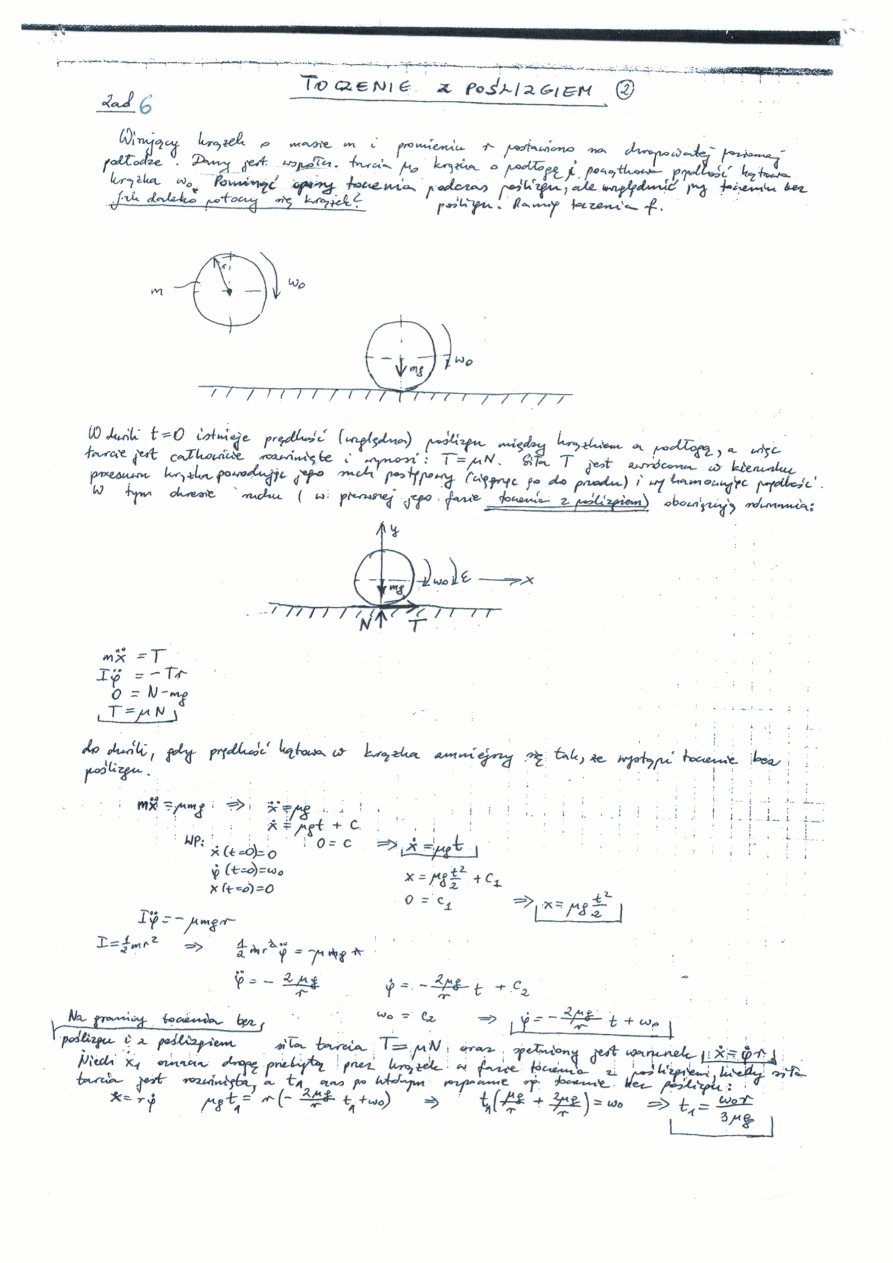 TOCZENIE z POŚLIZGIEM ②
Zad 6
Wirujący krążek o masie m i promieniu r postawiono na chropowatej poziomej
podłodze. Dany jest współcz. tarcia μ₀ krążka o podłogę i początkowa prędkość kątowa
krążka ω₀. Pominąć opory toczenia podczas poślizgu, ale uwzględnić przy toczeniu bez
Jak daleko potoczy się krążek? poślizgu. Ramię toczenia f.
r
m ω₀
mg ω₀
W chwili t=0 istnieje prędkość (względna) poślizgu między krążkiem a podłogą, a więc
tarcie jest całkowicie rozwinięte i wynosi: T=μN. Siła T jest zwrócona w kierunku
przesuwu krążka powodując jego ruch postępowy (ciągnąc go do przodu) i wyhamowując prędkość.
W tym okresie ruchu (w pierwszej jego fazie toczenia z poślizgiem) obowiązują równania:
y
mg ω₀ ε x
N T
mẍ = T
Iφ̈ = -Tr
0 = N-mg
T=μN
do chwili, gdy prędkość kątowa ω krążka zmniejszy się tak, że wystąpi toczenie bez
poślizgu.
mẍ=μmg ⇒ ẍ=μg
ẋ=μgt + C
WP: 0=C ⇒ ẋ=μgt
ẋ(t=0)=0
φ̇(t=0)=ω₀ x=μg t²/2 + C₁
x(t=0)=0 0=C₁ ⇒ x=μg t²/2
Iφ̈=-μmgr
I=½mr² ⇒ ½mr²φ̈=-μmgr
φ̈=-2μg/r φ̇=-2μg/r t + C₂
ω₀=C₂ ⇒ φ̇=-2μg/r t+ω₀
Na granicy toczenia bez
poślizgu i z poślizgiem siła tarcia T=μN oraz spełniony jest warunek ẋ=φ̇r
Niech x₁ oznacza drogę przebytą przez krążek w fazie toczenia z poślizgiem, kiedy siła
tarcia jest rozwinięta, a t₁ czas po którym rozpocznie się toczenie bez poślizgu:
ẋ=rφ̇ μgt₁=r(-2μg/r t₁+ω₀) ⇒ t₁(μg/r+2μg/r)=ω₀ ⇒ t₁=ω₀r/3μg